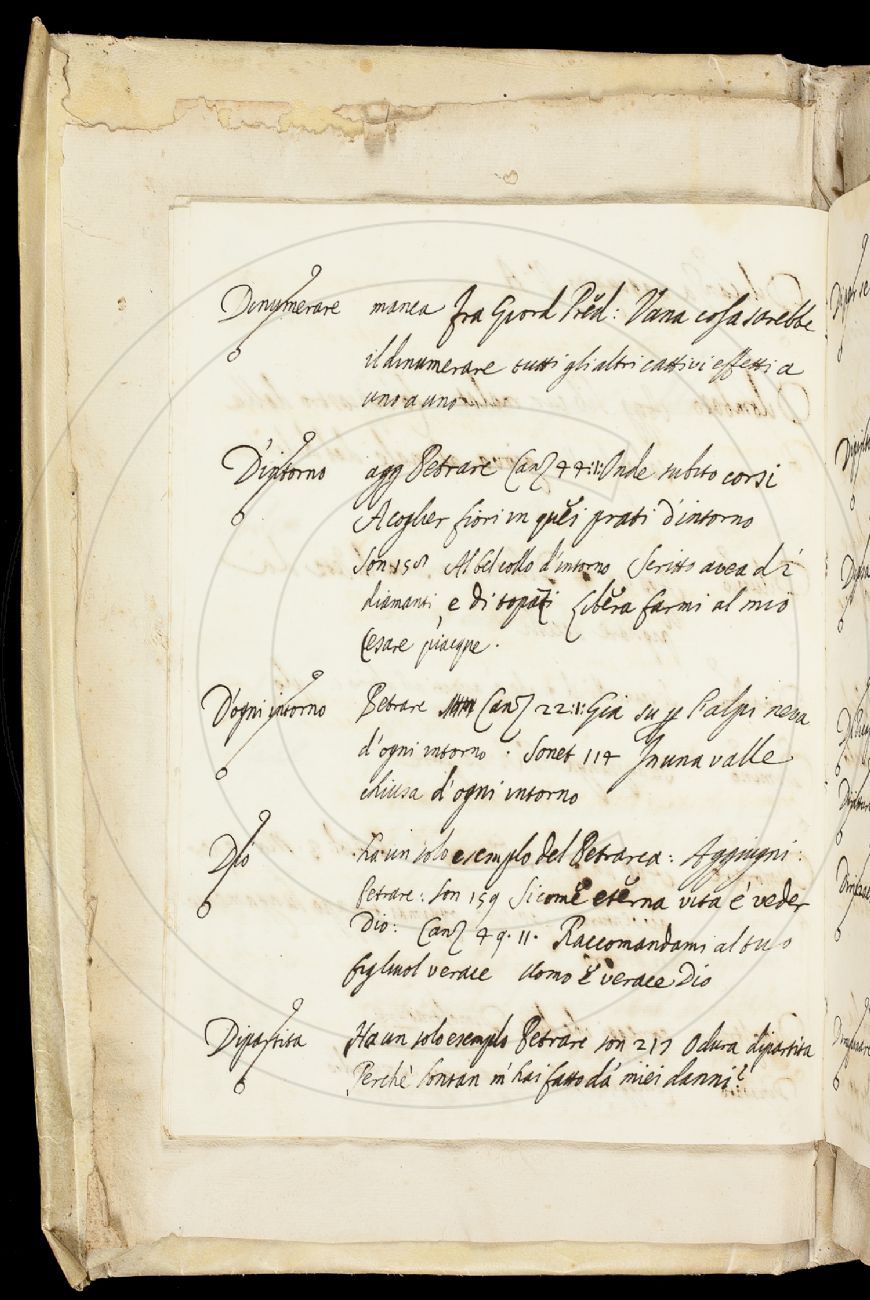 Dinumerare manca fra Giord Pred: Vana cosa sarebbe
il dinumerare tutti gli altri cattivi effetti a
uno a uno
D'intorno agg Petrarc Canz 44:11: Onde subito corsi
A coglier fiori in quei prati d'intorno
Son: 158 Al bel collo d'intorno Scritto avea di
diamanti, e di topati Libera farmi al mio
Cesare piacque.
D'ogni intorno Petrarc Canz 22:1: Già su p l'alpi neva
d'ogni intorno. Sonet 114 In una valle
chiusa d'ogni intorno
Dio ha un solo esempio del Petrarca: Aggiugni:
Petrarc: son 159 Sicome eterna vita è veder
Dio: Canz 49. 11. Raccomandami al tuo
figliuol verace uomo e verace Dio
Dipartita Ha un solo esemplo Petrarc son 217 O dura dipartita
Perchè lontan m'hai fatto dà miei danni?